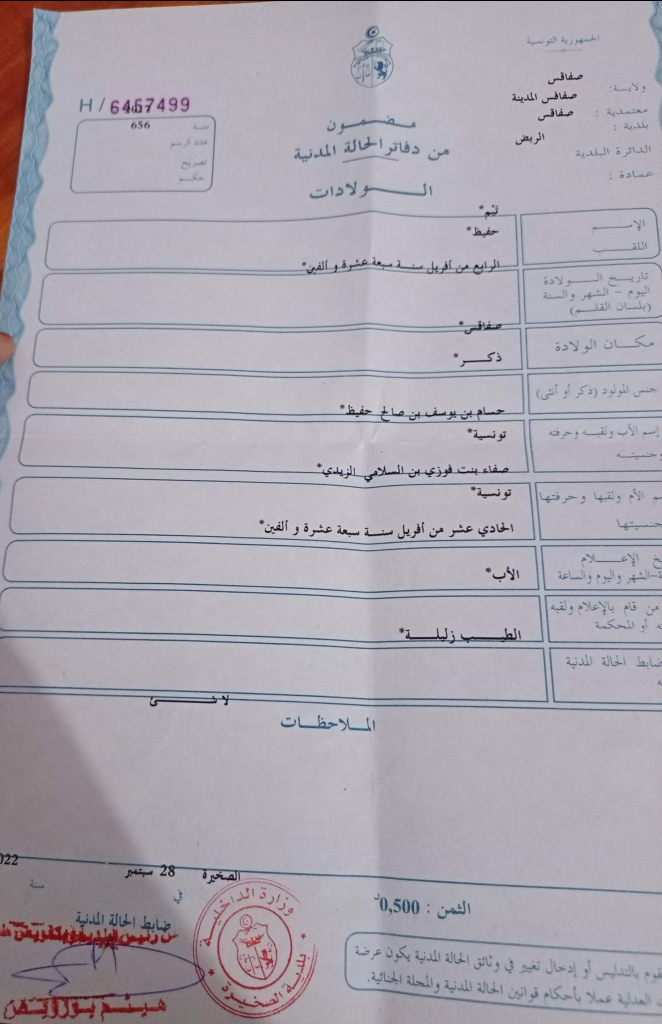 الجمهورية التونسية
ولاية : صفاقس
معتمدية : صفاقس المدينة
بلدية : صفاقس
الدائرة البلدية : الربض
عمادة :
H/6457499
سنة
عدد الرسم 656
تصريح
حكم
مضمون
من دفاتر الحالة المدنية
الولادات
الإسم تيم*
اللقب حفيظ*
تاريخ الولادة
اليوم - الشهر والسنة
(بلسان القلم)
الرابع من أفريل سنة سبعة عشرة و ألفين*
مكان الولادة صفاقس*
جنس المولود (ذكر أو أنثى) ذكر*
إسم الأب ولقبه وحرفته حسام بن يوسف بن صالح حفيظ*
وجنسيته تونسية*
م الأم ولقبها وحرفتها صفاء بنت فوزي بن السلامي الزيدي*
جنسيتها تونسية*
خ الإعلام
ة-الشهر واليوم والساعة
الحادي عشر من أفريل سنة سبعة عشرة و ألفين*
من قام بالإعلام ولقبه الأب*
ه أو المحكمة
ضابط الحالة المدنية الطيب زليلة*
لا شئ
الملاحظات
الصخيرة في 28 سبتمبر سنة 022
الثمن : 0,500د
ضابط الحالة المدنية
هيثم بوزويتن
وزارة الداخلية
بلدية الصخيرة
قوم بالتدليس أو إدخال تغيير في وثائق الحالة المدنية يكون عرضة
العدلية عملا بأحكام قوانين الحالة المدنية والمجلة الجنائية.